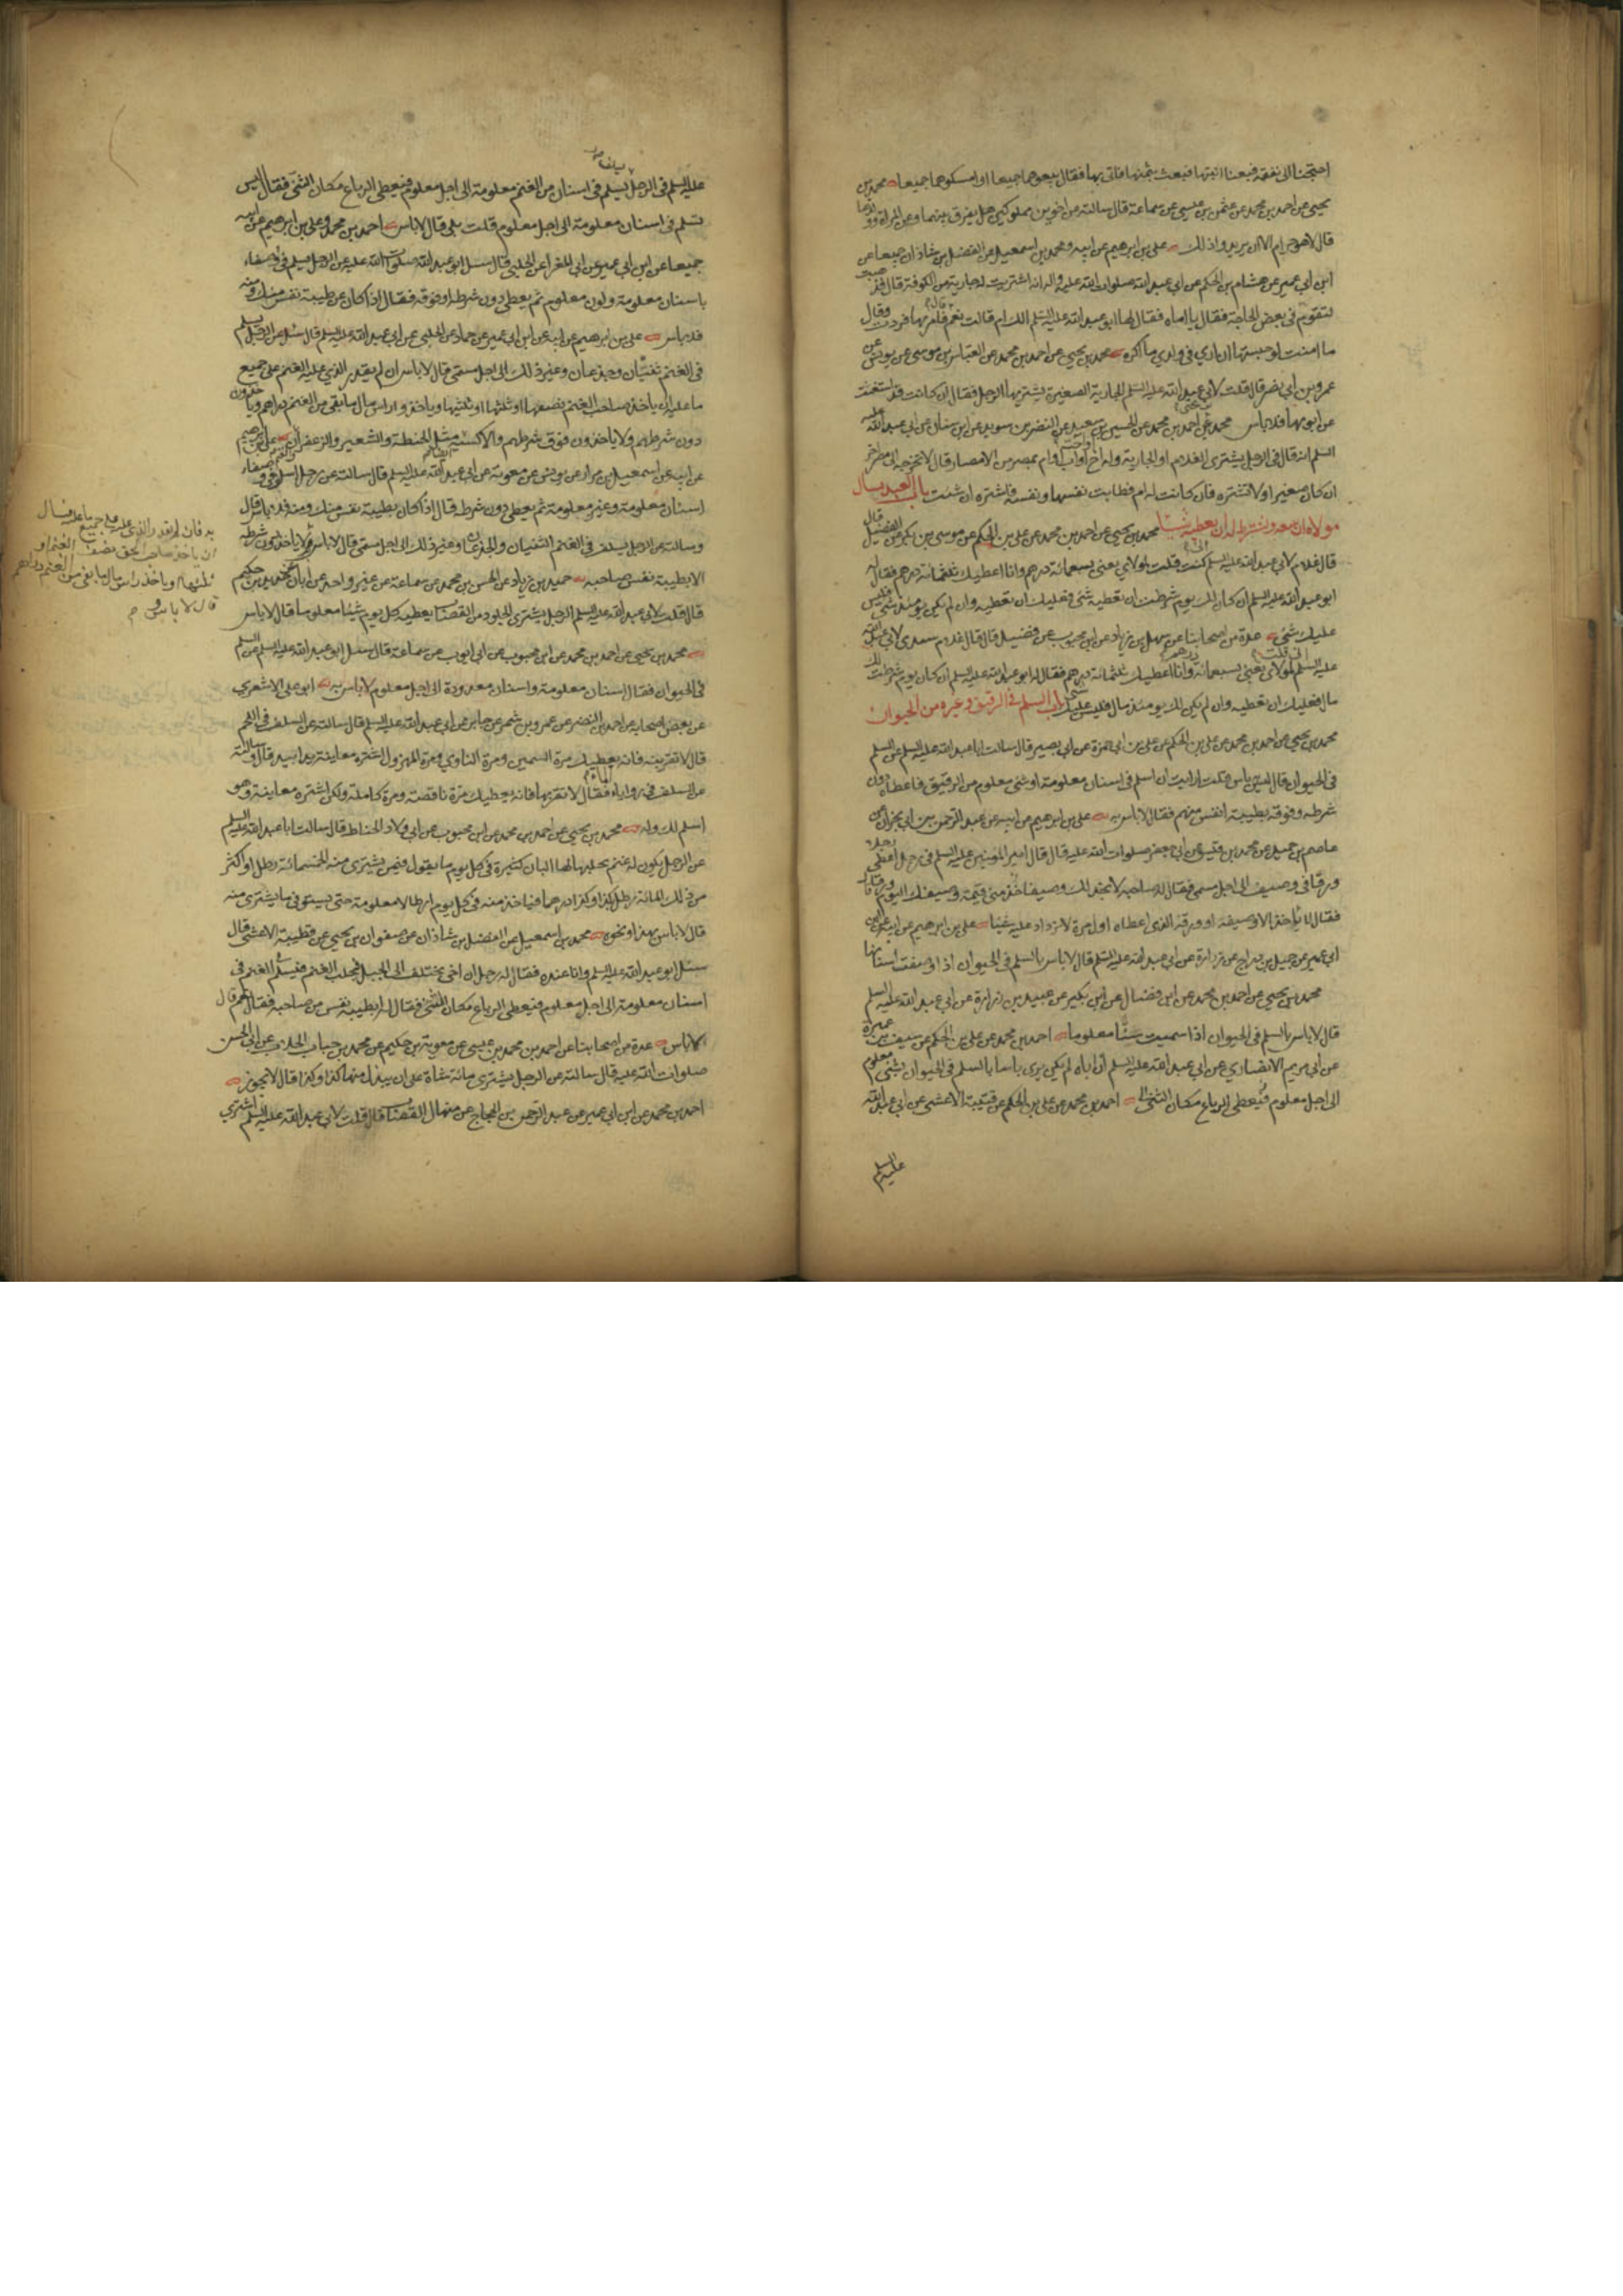 احتجنا الى نفقة فبعنا ابنتها فبعث بثمنها فاتى بها فقال بيعوهما جميعا او امسكوهما جميعا محمد بن
يحيى عن احمد بن محمد عن عثمن بن عيسى عن سماعة قال سالته عن اخوين مملوكين هل يفرق بينهما وعن المراة وولدها
قال لا هو حرام الا ان يريدوا ذلك علي بن ابرهيم عن ابيه ومحمد بن اسمعيل عن الفضل بن شاذان جميعا عن
ابن ابي عمير عن هشام بن الحكم عن ابي عبد الله صلوات الله عليه واله انه اشتريت له جارية من الكوفة قال فذهبت
لتقوم في بعض الحاجة فقال يا اماه فقال لها ابو عبد الله عليه السلم الك ام قالت نعم فامر بها فردت وقال
ما امنت لو حبستها ان ارى في ولدي ما اكره محمد بن يحيى عن احمد بن محمد عن العباس بن موسى عن يونس عن
عمرو بن ابي نصر قال قلت لابي عبد الله عليه السلم الجارية الصغيرة يشتريها الرجل فقال ان كانت قد استغنت
عن ابويها فلا باس محمد عن احمد بن محمد عن الحسين بن سعيد عن النضر بن سويد عن ابن سنان عن ابي عبد الله عليه
السلم انه قال في الرجل يشترى الغلام او الجارية وله اخ او اخت او اب او ام بمصر من الامصار قال لا تخرجه الى مصر اخر
ان كان صغيرا ولا تشتره فان كانت له ام فطابت نفسها ونفسه فاشتره ان شئت باب العبد يسال
مولاه ان يبيعه ويشترط له ان يعطيه شيئا محمد بن يحيى عن احمد بن محمد عن علي بن الحكم عن موسى بن بكر عن الفضيل قال
قال غلام لابي عبد الله عليه السلم اني كنت قلت لمولاي بعني بسبعمائة درهم وانا اعطيك ثلثمائة درهم فقال له
ابو عبد الله عليه السلم ان كان لك يوم شرطت ان تعطيه شئ فعليك ان تعطيه وان لم يكن لك يومئذ شئ فليس
عليك شئ عدة من اصحابنا عن سهل بن زياد عن ابن محبوب عن فضيل قال قال غلام سندي لابي عبد الله
عليه السلم اني قلت لمولاي بعني بسبعمائة درهم وانا اعطيك ثلثمائة درهم فقال له ابو عبد الله عليه السلم ان كان يوم شرطت لك
مال فعليك ان تعطيه وان لم يكن لك يومئذ مال فليس عليك شئ باب السلم في الرقيق وغيره من الحيوان
محمد بن يحيى عن احمد بن محمد عن علي بن الحكم عن علي بن ابي حمزة عن ابي بصير قال سالت ابا عبد الله عليه السلم عن السلم
في الحيوان قال ليس به باس قلت ارايت ان اسلم في اسنان معلومة او شئ معلوم من الرقيق فاعطاه دون
شرطه وفوقه بطيبة انفس منهم فقال لا باس به علي بن ابرهيم عن ابيه عن عبد الرحمن بن ابي نجران عن
عاصم بن حميد عن محمد بن قيس عن ابي جعفر صلوات الله عليه قال قال امير المؤمنين عليه السلم في رجل اعطى رجلا
ورقا في وصيف الى اجل مسمى فقال له صاحبه لا نجد لك وصيفا خذ مني قيمة وصيفك اليوم ورقا قال
فقال لا ياخذ الا وصيفه او ورقه الذي اعطاه اول مرة لا يزداد عليه شيئا علي بن ابرهيم عن ابيه عن ابن
ابي عمير عن جميل بن دراج عن زرارة عن ابي عبد الله عليه السلم قال لا باس بالسلم في الحيوان اذا وصفت اسنانها
محمد بن يحيى عن احمد بن محمد عن ابن فضال عن ابن بكير عن عبيد بن زرارة عن ابي عبد الله عليه السلم
قال لا باس بالسلم في الحيوان اذا سميت سنا معلوما احمد بن محمد عن علي بن الحكم عن سيف بن عميرة
عن ابي مريم الانصاري عن ابي عبد الله عليه السلم ان اباه لم يكن يرى باسا بالسلم في الحيوان بشئ معلوم
الى اجل معلوم فيعطى الرباع مكان الثنى احمد بن محمد عن علي بن الحكم عن قتيبة الاعشى عن ابي عبد الله
عليه السلم
عليه السلم في الرجل يسلم في اسنان من الغنم معلومة الى اجل معلوم فيعطى الرباع مكان الثني فقال اليس
تسلم في اسنان معلومة الى اجل معلوم قلت بلى قال لا باس احمد بن محمد وعلي بن ابرهيم عن ابيه
جميعا عن ابن ابي عمير عن ابي المغرا عن الحلبي قال سئل ابو عبد الله صلوات الله عليه عن الرجل يسلم في وصفاء
باسنان معلومة ولون معلوم ثم يعطي دون شرطه او فوقه فقال اذا كان عن طيبة نفس منك ومنه
فلا باس علي بن ابرهيم عن ابيه عن ابن ابي عمير عن حماد عن الحلبي عن ابي عبد الله عليه السلم قال سئل عن الرجل يسلم
في الغنم ثنيان وجذعان وغير ذلك الى اجل مسمى قال لا باس ان لم يقدر الذي عليه الغنم على جميع
ما عليه ان ياخذ صاحب الغنم نصفها او ثلثها او ثلثيها وياخذوا راس مال ما بقي من الغنم دراهم وياخذون
دون شرطهم ولا ياخذون فوق شرطهم والاكسية مثل الحنطة والشعير والزعفران والغنم علي بن ابرهيم
عن ابيه عن اسمعيل بن مرار عن يونس عن معوية عن ابي عبد الله عليه السلم قال سالته عن رجل اسلم في وصفاء
اسنان معلومة وغير معلومة ثم يعطي دون شرطه قال اذا كان بطيبة نفس منك ومنه فلا باس قال
وسالته عن الرجل يسلف في الغنم الثنيان والجذعان وغير ذلك الى اجل مسمى قال لا باس به
الا بطيبة نفس صاحبه حميد بن زياد عن الحسن بن محمد بن سماعة عن غير واحد عن ابان عن حديد بن حكيم
قال قلت لابي عبد الله عليه السلم الرجل يشترى الجلود من القصاب يعطيه كل يوم شيئا معلوما قال لا باس
محمد بن يحيى عن احمد بن محمد عن ابن محبوب عن ابي ايوب عن سماعة قال سئل ابو عبد الله عليه السلم عن السلم
في الحيوان فقال اسنان معلومة واسنان معدودة الى اجل معلوم لا باس به ابو علي الاشعري
عن بعض اصحابه عن احمد بن النضر عن عمرو بن شمر عن جابر عن ابي عبد الله عليه السلم قال سالته عن السلف في اللحم
قال لا تقربنه فانه يعطيك مرة السمين ومرة التاوي ومرة المهزول اشتره معاينة يدا بيد قال وسالته
عن السلف في روايا الماء فقال لا تقربها فانه يعطيك مرة ناقصة ومرة كاملة ولكن اشتره معاينة وهو
اسلم لك وله محمد بن يحيى عن احمد بن محمد عن ابن محبوب عن ابي ولاد الحناط قال سالت ابا عبد الله عليه السلم
عن الرجل يكون له غنم يحلبها لها البان كثيرة في كل يوم ما يقول فيمن يشترى منه الخمسمائة رطل او اكثر
من ذلك المائة رطل بكذا وكذا درهما فياخذ منه في كل يوم ارطالا معلومة حتى يستوفي ما يشترى منه
قال لا باس بهذا ونحوه محمد بن اسمعيل عن الفضل بن شاذان عن صفوان بن يحيى عن قتيبة الاعشى قال
سئل ابو عبد الله عليه السلم وانا عنده فقال له رجل ان اخي يختلف الى الجبل يجلب الغنم فيسلم في الغنم في
اسنان معلومة الى اجل معلوم فيعطى الرباع مكان الثني فقال له ابطيبة نفس من صاحبه فقال نعم قال
لا باس عدة من اصحابنا عن احمد بن محمد بن عيسى عن معوية بن حكيم عن محمد بن حباب الجلاب عن ابي الحسن
صلوات الله عليه قال سالته عن الرجل يشترى مائة شاة على ان يبدل منها كذا وكذا قال لا يجوز
احمد بن محمد عن ابن ابي عمير عن عبد الرحمن بن الحجاج عن منهال القصاب قال قلت لابي عبد الله عليه السلم اشترى
به فان لم يقدر الذي عليه على جميع ما عليه فسال
ان ياخذ صاحب الحق نصف الغنم او
ثلثها وياخذ راس مال ما بقي من الغنم دراهم
قال لا باس